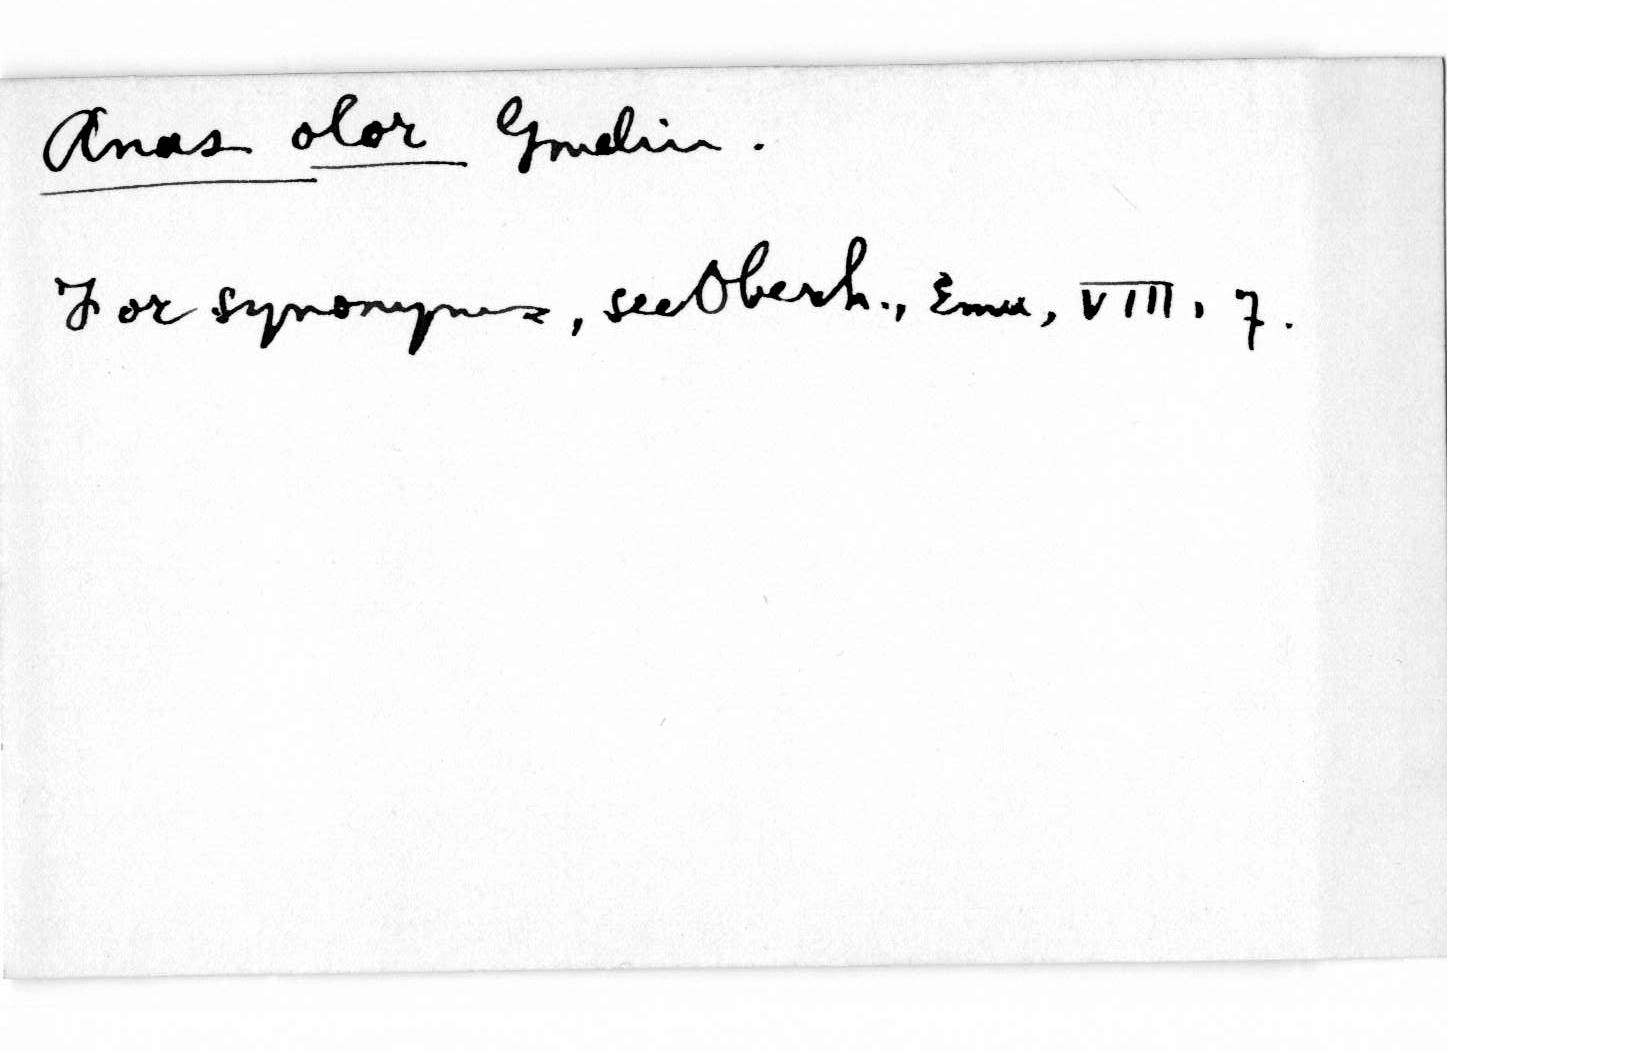 Anas olor Gmelin.
For synonyms, see Oberh., Emu, VIII, 7.